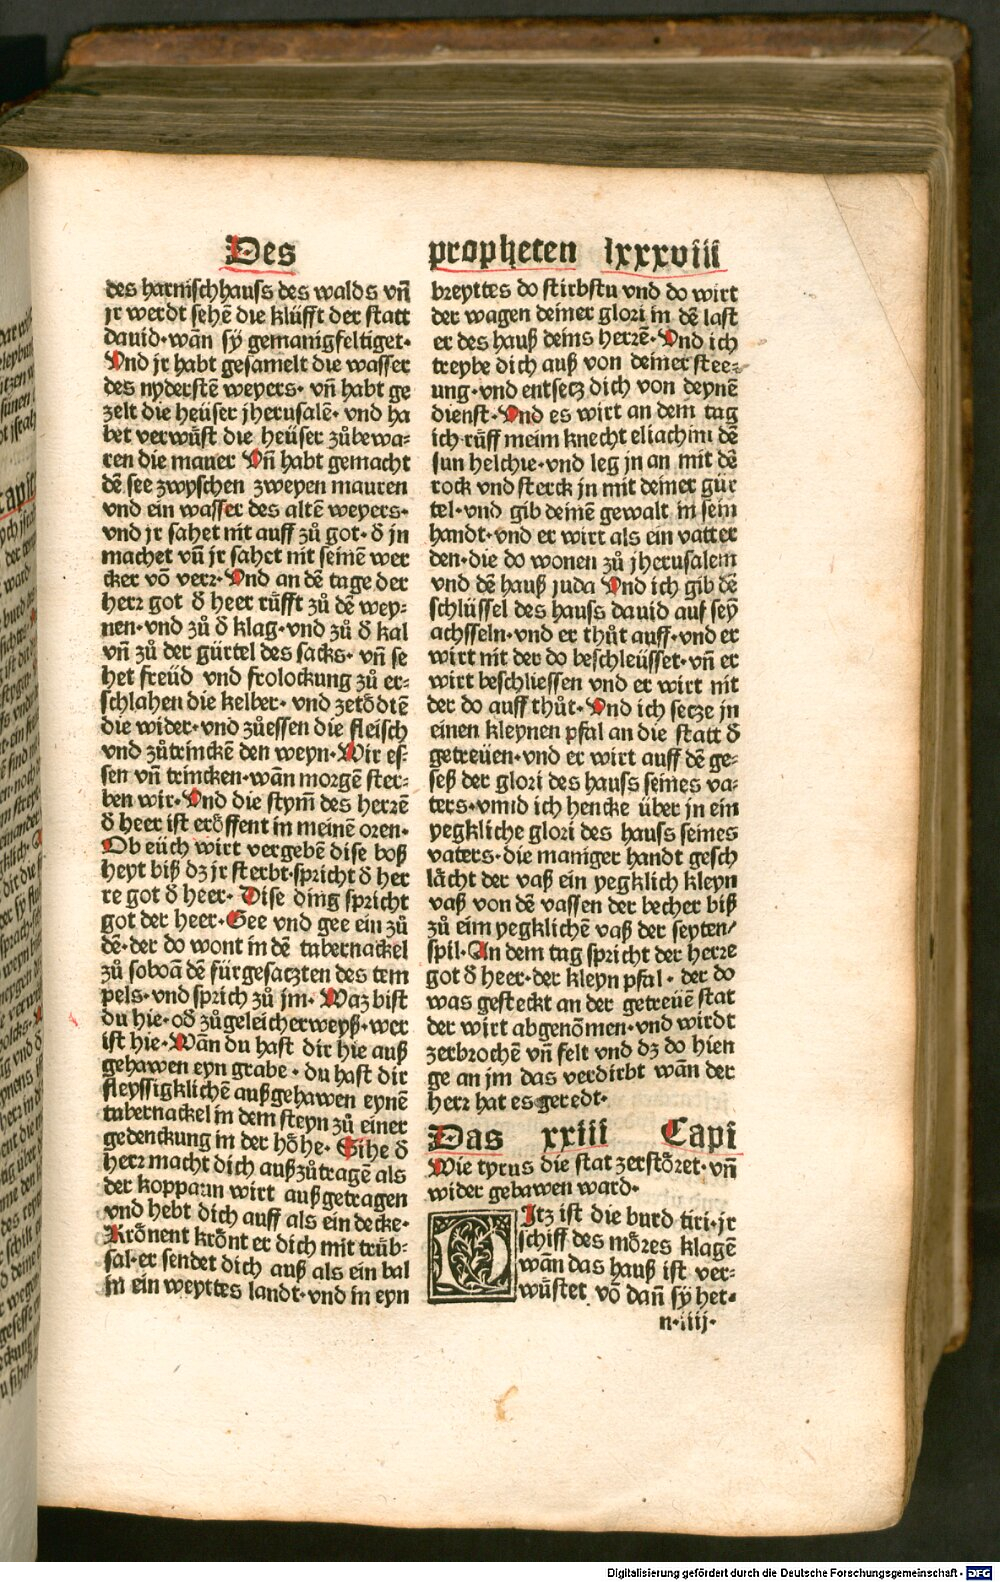 Des propheten lxxxviii
des harnischhauss des walds vn̄
jr werdt sehē die klüfft der statt
dauid·wān sÿ gemanigfeltiget·
Vnd jr habt gesamelt die wasser
des nyderstē weyers· vn̄ habt ge
zelt die heüser jherusalē· vnd ha
bet verwüst die heüser zůbewa⸗
ren die mauer Vn̄ habt gemacht
dē see zwyschen zweyen mauren
vnd ein wasser des altē weyers·
vnd jr sahet nit auff zů got· d̄ jn
machet vn̄ jr sahet nit seinē wer
cker vō verr·Vnd an dē tage der
herr got d̄ heer rüfft zů dē wey⸗
nen·vnd zů d̄ klag·vnd zů d̄ kal
vn̄ zů der gürtel des sacks· vn̄ se
het freüd vnd frolockung zů er⸗
schlahen die kelber· vnd zetödtē
die wider·vnd zůessen die fleisch
vnd zůtrinckē den weyn·Wir es⸗
sen vn̄ trincken·wān morgē ster⸗
ben wir·Vnd die stym̄ des herrē
d̄ heer ist eröffent in meinē oren·
Ob eüch wirt vergebē dise boß
heyt biß dz jr sterbt·spricht d̄ her
re got d̄ heer· Dise ding spricht
got der heer·Gee vnd gee ein zů
dē·der do wont in dē tabernackel
zů soboā dē fürgesatzten des tem
pels·vnd sprich zů jm· Waz bist
du hie·od̄ zůgeleicherweyß·wer
ist hie·Wān du hast dir hie auß
gehawen eyn grabe·du hast dir
fleyssigklichē außgehawen eynē
tabernackel in dem steyn zů einer
gedenckung in der höhe· Sihe d̄
herr macht dich außzůtragē als
der koppaun wirt außgetragen
vnd hebt dich auff als ein decke·
Krönent krönt er dich mit trüb⸗
sal·er sendet dich auß als ein bal
in ein weyttes landt·vnd in eyn
breyttes do stirbstu vnd do wirt
der wagen deiner glori in dē last
er des hauß deins herrē·Vnd ich
treybe dich auß von deiner stee⸗
ung·vnd entsetz dich von deynē
dienst·Vnd es wirt an dem tag
ich rüff meim knecht eliachim dē
sun helchie·vnd leg jn an mit dē
rock vnd sterck jn mit deiner gür
tel·vnd gib deinē gewalt in sein
handt·vnd er wirt als ein vatter
den·die do wonen zů jherusalem
vnd dē hauß juda Vnd ich gib dē
schlüssel des hauss dauid auf sey
achsseln·vnd er thůt auff·vnd er
wirt nit der do beschleüsset·vn̄ er
wirt beschliessen vnd er wirt nit
der do auff thůt·Vnd ich setze jn
einen kleynen pfal an die statt d̄
getreüen·vnd er wirt auff dē ge⸗
seß der glori des hauss seines va⸗
ters·vnnd ich hencke über jn ein
yegkliche glori des hauss seines
vaters·die maniger handt gesch
lächt der vaß ein yegklich kleyn
vaß von dē vassen der becher biß
zů eim yegklichē vaß der seyten/
spil·An dem tag spricht der herre
got d̄ heer·der kleyn pfal· der do
was gesteckt an der getreüē stat
der wirt abgenōmen·vnd wirdt
zerbrochē vn̄ felt vnd dz do hien
ge an jm das verdirbt wān der
herr hat es geredt·
Das xxiii Capi
Wie tyrus die stat zerstöret·vn̄
wider gebawen ward·
Ditz ist die burd tiri·jr
schiff des möres klagē
wān das hauß ist ver⸗
wüstet vō dan̄ sÿ het⸗
n·iiij·
Digitalisierung gefördert durch die Deutsche Forschungsgemeinschaft - DFG